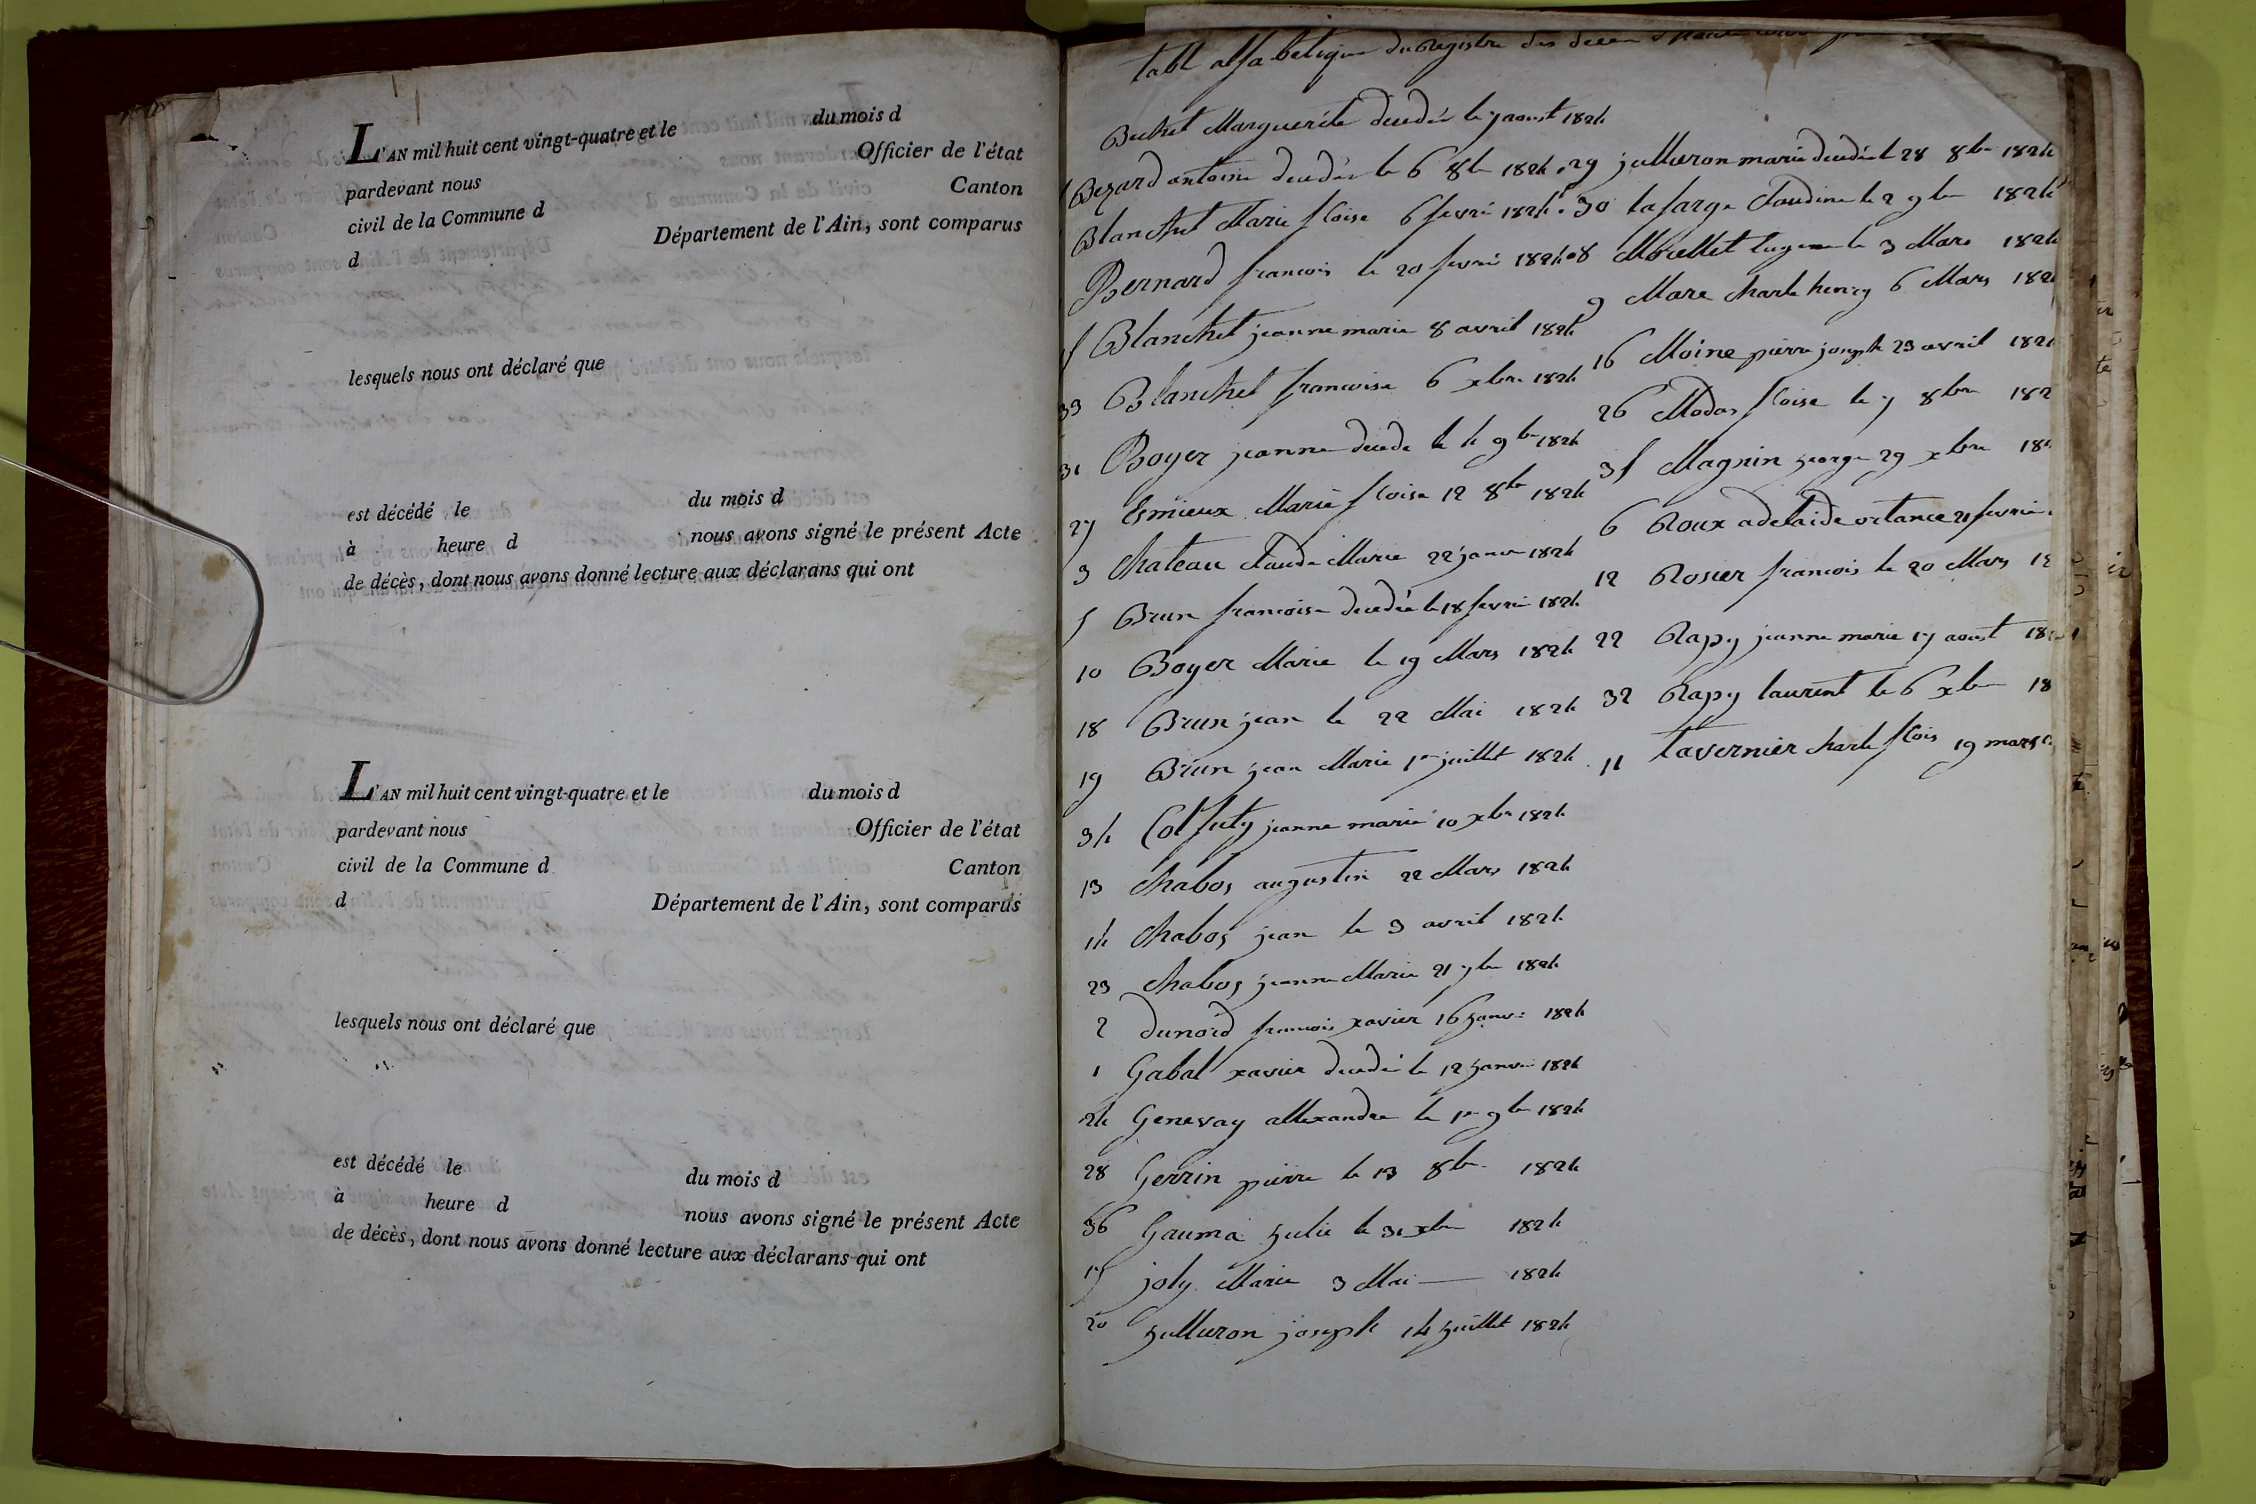 L'AN mil huit cent vingt-quatre et le du mois d
pardevant nous Officier de l'état
civil de la Commune d Canton
d Département de l'Ain, sont comparus
lesquels nous ont déclaré que
est décédé le du mois d
à heure d nous avons signé le présent Acte
de décès, dont nous avons donné lecture aux déclarans qui ont
L'AN mil huit cent vingt-quatre et le du mois d
pardevant nous Officier de l'état
civil de la Commune d Canton
d Département de l'Ain, sont comparus
lesquels nous ont déclaré que
est décédé le du mois d
à heure d nous avons signé le présent Acte
de décès, dont nous avons donné lecture aux déclarans qui ont
tabl alfabetique du Registre des deces
Buchet Marguerite decedée le 7 aoust 1824
Bezard antoine decedé le 6 8br 1824
Blanchet Marie floise 6 fevrié 1824
Bernard francois le 20 fevrié 1824
Blanchet jeanne marie 8 avril 1824
33 Blanchet francoise 6 xbre 1824
31 Boyer jeanne decede le 4 9br 1824
27 Esmieux Marie floise 12 8br 1824
3 Chateau Claude Marie 22 janv 1824
5 Brun francoise decedée le 18 fevrié 1824
10 Boyer Marie le 19 Mars 1824
18 Brun jean le 22 Mai 1824
19 Brun jean Marie 1er juillet 1824
34 jeanne marie 10 xbr 1824
13 Chabos augustin 22 Mars 1824
14 Chabos jean le 3 avril 1824
23 Chabos jeanne Marie 21 7br 1824
2 Dunord francois xavier 16 janvr 1824
1 Gabal xavier decedé le 12 janvié 1824
24 Genevay allexandre le 1er 9br 1824
28 Gerrin pierre le 13 8br 1824
36 Gauma julie le 31 xbr 1824
17 joly Marie 3 Mai 1824
20 julluron joseph 14 juillet 1824
29 julluron marie decedée le 28 8br 1824
30 lafarge Claudine le 2 9br 1824
8 Morellet eugene le 3 Mars 1824
9 Mare Charle henry 6 Mars 182
16 Moine pierre joseph 23 avril 182
26 Modas floise le 7 8bre 182
35 Magnin george 29 xbre 18
6 Roux adelaide ortance 21 fevrié
12 Rosier francois le 20 Mars 18
22 Rapy jeanne marie 17 aoust 18
32 Rapy laurent le 6 xbr 18
11 tavernier Charle flois 19 mars